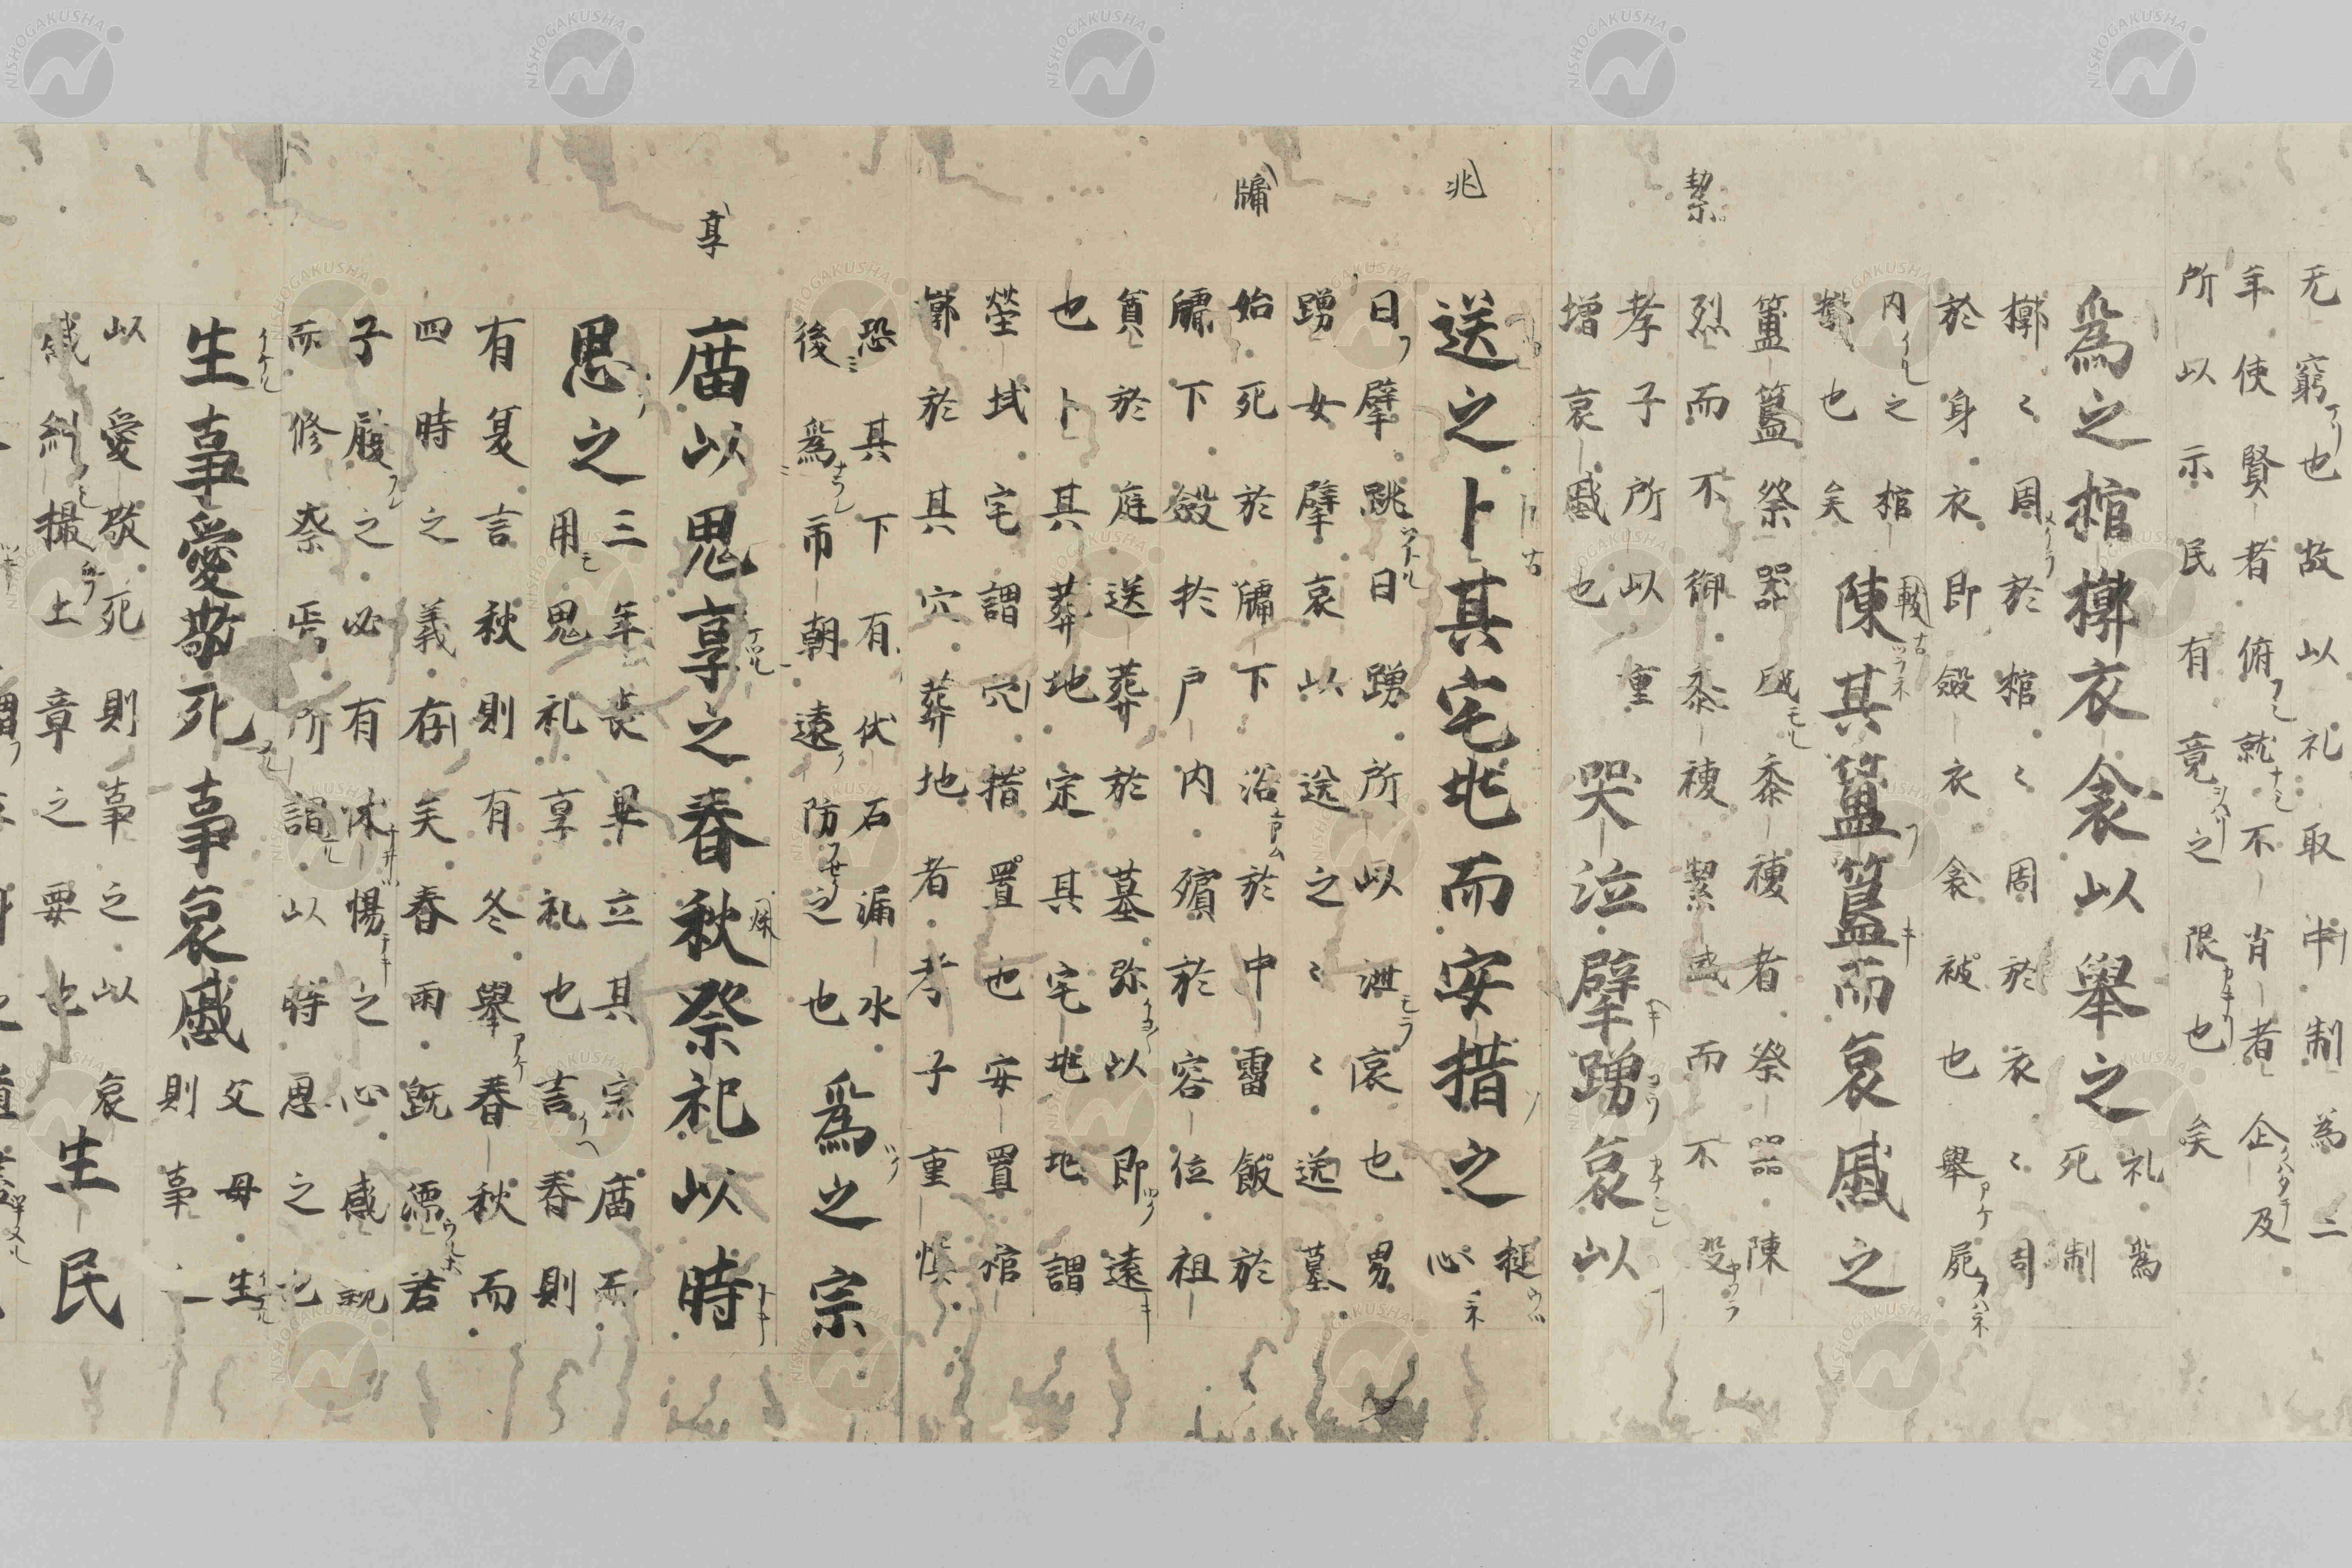 无窮也故以礼取中制為二
年使賢者俯就不肖者企及
所以示民有竟之限也矣
為之棺槨衣衾以舉之
礼為
死制
槨々周於棺々周於衣々周
於身衣即斂衣衾被也舉屍
内之棺
也矣
陳其簠簋而哀慼之
簠簋祭器盛黍稷者祭器陳
烈而不御黍稷潔盛而不
孝子所以重
增哀慼也
哭泣擗踊哀以
送之卜其宅兆而安措之
搥
心
曰擗跳曰踊所以泄哀也男
踊女擗哀以送之々々送墓
始死於牖下浴於中霤飯於
牖下斂於戸内殯於客位祖
奠於庭送葬於墓弥以即遠
也卜其葬地定其宅兆地謂
塋域宅謂穴措置也安置棺
槨於其穴葬地者孝子重慎
恐其下有伏石漏水
後為市朝遠防之也
為之宗
庿以鬼享之春秋祭祀以時
思之
三年喪畢立其宗庿而
用鬼礼享礼也言春則
有夏言秋則有冬舉春秋而
四時之義存矣春雨既濡君
子履之必有怵惕之心感親
而修祭焉所謂以時思之也
生事愛敬死事哀慼
父母生
則事之
以愛敬死則事之以哀
慼糺撮土章之要也
生民
兆
牖
潔
享